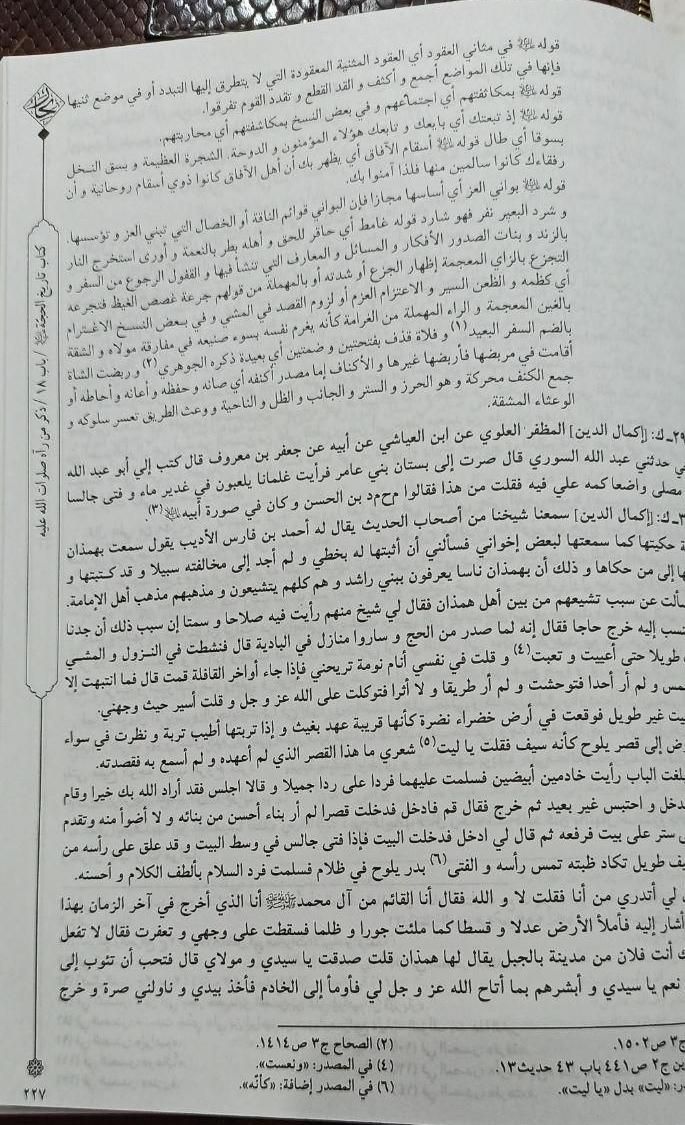 قوله ﷺ في مثاني العقود أي العقود المثنية المعقودة التي لا يتطرق إليها التبدد أو في موضع ثنيها
فإنها في تلك المواضع أجمع و أكثف و القد القطع و تقدد القوم تفرقوا.
قوله بمكاثفتهم أي اجتماعهم و في بعض النسخ بمكاشفتهم أي محاربتهم.
قوله إذ تبعتك أي بايعك و تابعك هؤلاء المؤمنون و الدوحة. الشجرة العظيمة و بسق النخل
بسوقا أي طال قوله أسقام الآفاق أي يظهر بك أن أهل الآفاق كانوا ذوي أسقام روحانية و أن
رفقاءك كانوا سالمين منها فلذا آمنوا بك.
قوله بواني العز أي أساسها مجازا فإن البواني قوائم الناقة أو الخصال التي تبني العز و تؤسسها.
و شرد البعير نفر فهو شارد قوله غامط أي حافر للحق و أهله بطر بالنعمة و أورى استخرج النار
بالزند و بنات الصدور الأفكار و المسائل و المعارف التي تنشأ فيها و القفول الرجوع من السفر و
التجزع بالزاي المعجمة إظهار الجزع أو شدته أو بالمهملة من قولهم جرعة غصص الغيظ فتجرعه
أي كظمه و الظعن السير و الاعتزام العزم أو لزوم القصد في المشي و في بعض النسخ الاغترام
بالغين المعجمة و الراء المهملة من الغرامة كأنه يغرم نفسه بسوء صنيعه في مفارقة مولاه و الشقة
بالضم السفر البعيد(١) و فلاة قذف بفتحتين و ضمتين أي بعيدة ذكره الجوهري(٢) و ربضت الشاة
أقامت في مربضها فأربضها غيرها و الأكناف إما مصدر أكنفه أي صانه و حفظه و أعانه و أحاطه أو
جمع الكنف محركة و هو الحرز و الستر و الجانب و الظل و الناحية و وعث الطريق تعسر سلوكه و
الوعثاء المشقة.
٢٩ـ ك: [إكمال الدين] المظفر العلوي عن ابن العياشي عن أبيه عن جعفر بن معروف قال كتب إلي أبو عبد الله
حدثني عبد الله السوري قال صرت إلى بستان بني عامر فرأيت غلمانا يلعبون في غدير ماء و فتى جالسا
مصلى واضعا كمه على فيه فقلت من هذا فقالوا م‌ح‌م‌د بن الحسن و كان في صورة أبيه(٣).
ك: [إكمال الدين] سمعنا شيخنا من أصحاب الحديث يقال له أحمد بن فارس الأديب يقول سمعت بهمذان
حكيتها كما سمعتها لبعض إخواني فسألني أن أثبتها له بخطي و لم أجد إلى مخالفته سبيلا و قد كتبتها و
إلى من حكاها و ذلك أن بهمذان ناسا يعرفون ببني راشد و هم كلهم يتشيعون و مذهبهم مذهب أهل الإمامة.
عن سبب تشيعهم من بين أهل همذان فقال لي شيخ منهم رأيت فيه صلاحا و سمتا إن سبب ذلك أن جدنا
إليه خرج حاجا فقال إنه لما صدر من الحج و ساروا منازل في البادية قال فنشطت في النزول و المشي
طويلا حتى أعييت و تعبت(٤) و قلت في نفسي أنام نومة تريحني فإذا جاء أواخر القافلة قمت قال فما انتبهت إلا
و لم أر أحدا فتوحشت و لم أر طريقا و لا أثرا فتوكلت على الله عز و جل و قلت أسير حيث وجهني.
غير طويل فوقعت في أرض خضراء نضرة كأنها قريبة عهد بغيث و إذا تربتها أطيب تربة و نظرت في سواء
إلى قصر يلوح كأنه سيف فقلت يا ليت(٥) شعري ما هذا القصر الذي لم أعهده و لم أسمع به فقصدته.
الباب رأيت خادمين أبيضين فسلمت عليهما فردا على ردا جميلا و قالا اجلس فقد أراد الله بك خيرا وقام
و احتبس غير بعيد ثم خرج فقال قم فادخل فدخلت قصرا لم أر بناء أحسن من بنائه و لا أضوأ منه وتقدم
ستر على بيت فرفعه ثم قال لي ادخل فدخلت البيت فإذا فتى جالس في وسط البيت و قد علق على رأسه من
طويل تكاد ظبته تمس رأسه و الفتى(٦) بدر يلوح في ظلام فسلمت فرد السلام بألطف الكلام و أحسنه.
لي أتدري من أنا فقلت لا و الله فقال أنا القائم من آل محمد ﷺ أنا الذي أخرج في آخر الزمان بهذا
أشار إليه فأملأ الأرض عدلا و قسطا كما ملئت جورا و ظلما فسقطت على وجهي و تعفرت فقال لا تفعل
أنت فلان من مدينة بالجبل يقال لها همذان قلت صدقت يا سيدي و مولاي قال فتحب أن تئوب إلى
نعم يا سيدي و أبشرهم بما أتاح الله عز و جل لي فأومأ إلى الخادم فأخذ بيدي و ناولني صرة و خرج
ج٣ ص١٥٠٢.
(٢) الصحاح ج٣ ص١٤١٤.
ج٢ ص٤٤١ باب ٤٣ حديث١٣.
(٤) في المصدر: «ونعست».
«ليت» بدل «يا ليت».
(٦) في المصدر إضافة: «كأنّه».
كتاب تاريخ الحجة / باب ١٨ / ذكر من رآه صلوات الله عليه
٢٢٧